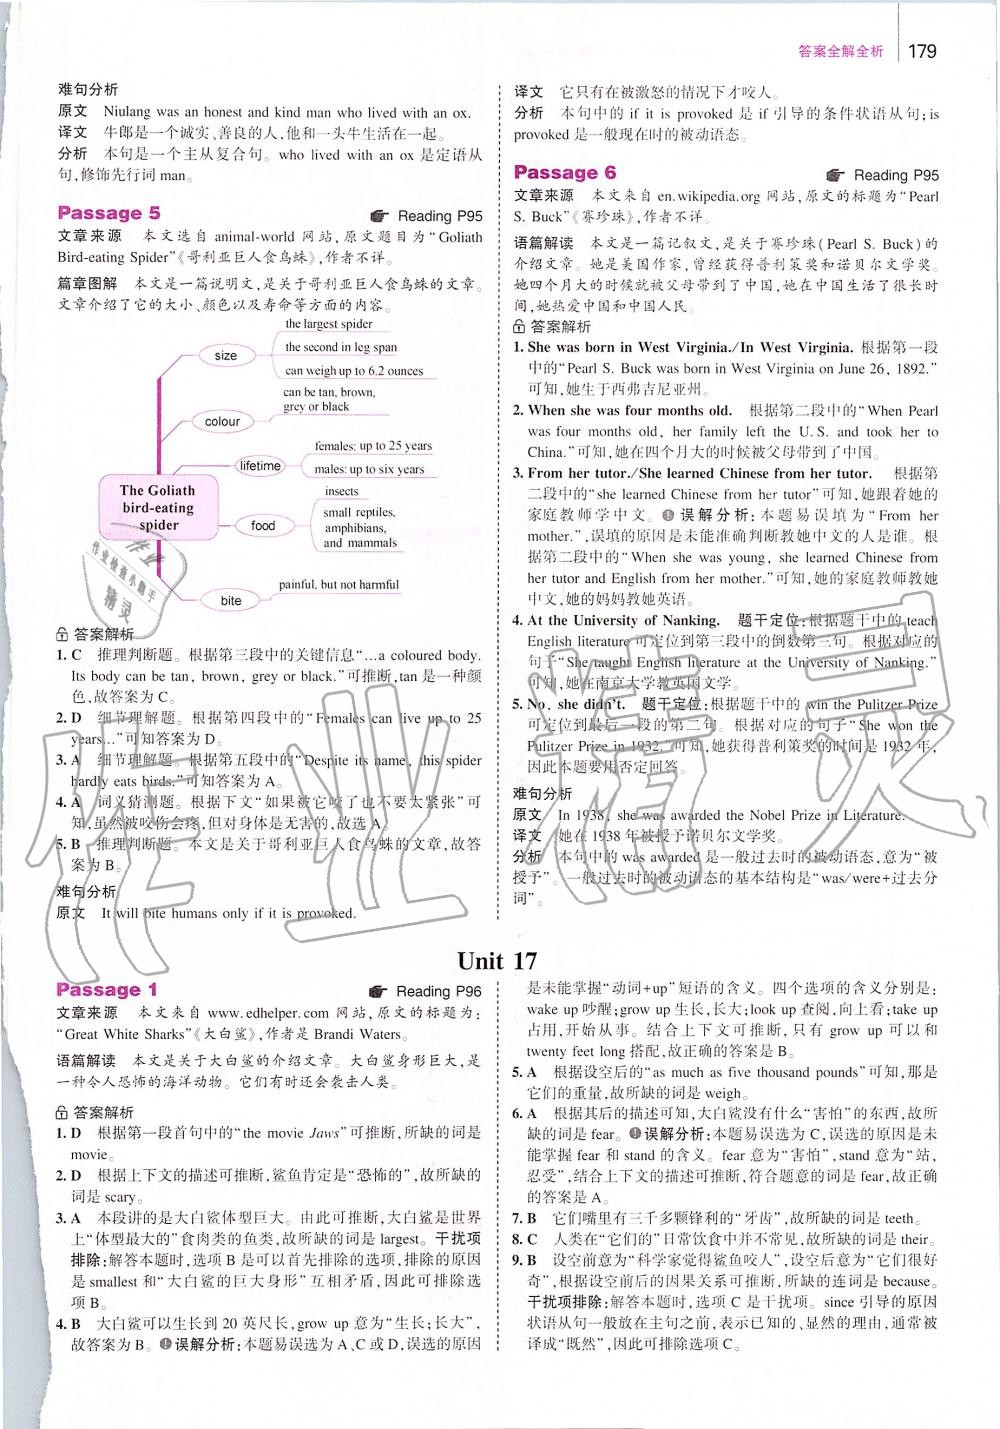 答案全解全析 179
难句分析
原文 Niulang was an honest and kind man who lived with an ox.
译文 牛郎是一个诚实、善良的人,他和一头牛生活在一起。
分析 本句是一个主从复合句。who lived with an ox 是定语从
句,修饰先行词 man。
Passage 5 Reading P95
文章来源 本文选自 animal-world 网站,原文题目为“Goliath
Bird-eating Spider”《哥利亚巨人食鸟蛛》,作者不详。
篇章图解 本文是一篇说明文,是关于哥利亚巨人食鸟蛛的文章。
文章介绍了它的大小、颜色以及寿命等方面的内容。
The Goliath
bird-eating
spider
size
the largest spider
the second in leg span
can weigh up to 6.2 ounces
colour
can be tan, brown,
grey or black
lifetime
females: up to 25 years
males: up to six years
food
insects
small reptiles,
amphibians,
and mammals
bite
painful, but not harmful
答案解析
1. C 推理判断题。根据第三段中的关键信息“…a coloured body.
Its body can be tan, brown, grey or black.”可推断,tan 是一种颜
色,故答案为 C。
2. D 细节理解题。根据第四段中的“Females can live up to 25
years…”可知答案为 D。
3. A 细节理解题。根据第五段中的“Despite its name, this spider
hardly eats birds.”可知答案为 A。
4. A 词义猜测题。根据下文“如果被它咬了也不要太紧张”可
知,虽然被咬伤会疼,但对身体是无害的,故选 A。
5. B 推理判断题。本文是关于哥利亚巨人食鸟蛛的文章,故答
案为 B。
难句分析
原文 It will bite humans only if it is provoked.
译文 它只有在被激怒的情况下才咬人。
分析 本句中的 if it is provoked 是 if 引导的条件状语从句;is
provoked 是一般现在时的被动语态。
Passage 6 Reading P95
文章来源 本文来自 en.wikipedia.org 网站,原文的标题为“Pearl
S. Buck”《赛珍珠》,作者不详。
语篇解读 本文是一篇记叙文,是关于赛珍珠(Pearl S. Buck)的
介绍文章。她是美国作家,曾经获得普利策奖和诺贝尔文学奖。
她四个月大的时候就被父母带到了中国,她在中国生活了很长时
间,她热爱中国和中国人民。
答案解析
1. She was born in West Virginia./In West Virginia. 根据第一段
中的“Pearl S. Buck was born in West Virginia on June 26, 1892.”
可知,她生于西弗吉尼亚州。
2. When she was four months old. 根据第二段中的“When Pearl
was four months old, her family left the U. S. and took her to
China.”可知,她在四个月大的时候被父母带到了中国。
3. From her tutor./She learned Chinese from her tutor. 根据第
二段中的“she learned Chinese from her tutor”可知,她跟着她的
家庭教师学中文。误解分析:本题易误填为“From her
mother.”,误填的原因是未能准确判断教她中文的人是谁。根
据第二段中的“When she was young, she learned Chinese from
her tutor and English from her mother.”可知,她的家庭教师教她
中文,她的妈妈教她英语。
4. At the University of Nanking. 题干定位:根据题干中的 teach
English literature 可定位到第三段中的倒数第三句。根据对应的
句子“She taught English literature at the University of Nanking.”
可知,她在南京大学教英国文学。
5. No, she didn't. 题干定位:根据题干中的 win the Pulitzer Prize
可定位到最后一段的第二句。根据对应的句子“She won the
Pulitzer Prize in 1932.”可知,她获得普利策奖的时间是 1932 年,
因此本题要用否定回答。
难句分析
原文 In 1938, she was awarded the Nobel Prize in Literature.
译文 她在 1938 年被授予诺贝尔文学奖。
分析 本句中的 was awarded 是一般过去时的被动语态,意为“被
授予”。一般过去时的被动语态的基本结构是“was/were+过去分
词”。
Unit 17
Passage 1 Reading P96
文章来源 本文来自 www.edhelper.com 网站,原文的标题为:
“Great White Sharks”《大白鲨》,作者是 Brandi Waters。
语篇解读 本文是关于大白鲨的介绍文章。大白鲨身形巨大,是
一种令人恐怖的海洋动物。它们有时还会袭击人类。
答案解析
1. D 根据第一段首句中的“the movie Jaws”可推断,所缺的词是
movie。
2. D 根据上下文的描述可推断,鲨鱼肯定是“恐怖的”,故所缺的
词是 scary。
3. A 本段讲的是大白鲨体型巨大。由此可推断,大白鲨是世界
上“体型最大的”食肉类的鱼类,故所缺的词是 largest。干扰项
排除:解答本题时,选项 B 是可以首先排除的选项,排除的原因
是 smallest 和“大白鲨的巨大身形”互相矛盾,因此可排除选
项 B。
4. B 大白鲨可以生长到 20 英尺长,grow up 意为“生长;长大”,
故答案为 B。误解分析:本题易误选为 A、C 或 D,误选的原因
是未能掌握“动词+up”短语的含义。四个选项的含义分别是:
wake up 吵醒;grow up 生长,长大;look up 查阅,向上看;take up
占用,开始从事。结合上下文可推断,只有 grow up 可以和
twenty feet long 搭配,故正确的答案是 B。
5. A 根据设空后的“as much as five thousand pounds”可知,那是
它们的重量,故所缺的词是 weigh。
6. A 根据其后的描述可知,大白鲨没有什么“害怕”的东西,故所
缺的词是 fear。误解分析:本题易误选为 C,误选的原因是未
能掌握 fear 和 stand 的含义。fear 意为“害怕”,stand 意为“站,
忍受”,结合上下文的描述可推断,符合题意的词是 fear,故正确
的答案是 A。
7. B 它们嘴里有三千多颗锋利的“牙齿”,故所缺的词是 teeth。
8. C 人类在“它们的”日常饮食中并不常见,故所缺的词是 their。
9. B 设空前意为“科学家觉得鲨鱼咬人”,设空后意为“它们很好
奇”,根据设空前后的因果关系可推断,所缺的连词是 because。
干扰项排除:解答本题时,选项 C 是干扰项。since 引导的原因
状语从句一般放在主句之前,表示已知的、显然的理由,通常被
译成“既然”,因此可排除选项 C。
作业精灵
作业检查小助手
作业
精灵